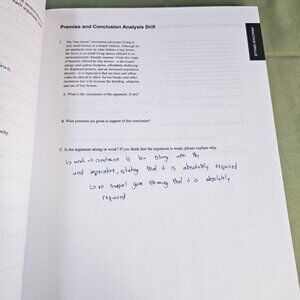 Premise and Conclusion Analysis Drill
1. The "tiny house" movement advocates living in
very small homes in a simple fashion. Although no
set standards exist on what defines a tiny house,
the focus is on small living spaces utilized in an
environmentally friendly manner. Given the range
of benefits offered by tiny houses
energy and carbon footprint, affordable sheltering
for displaced persons, and an increased population
density it is imperative that tax laws and urban
codes be altered to allow for tax breaks and other
incentives that will increase the building, adoption,
and use of tiny houses.
A. What is the conclusion of the argument, if any?
B. What premises are given in support of this conclusion?
C. Is the argument strong or weak? If you think that the argument is weak, please explain why.
↳ weak → conclusion is too strong with the
word imperative, stating that it is absolutely required
↳ no support given showing that it is absolutely
required